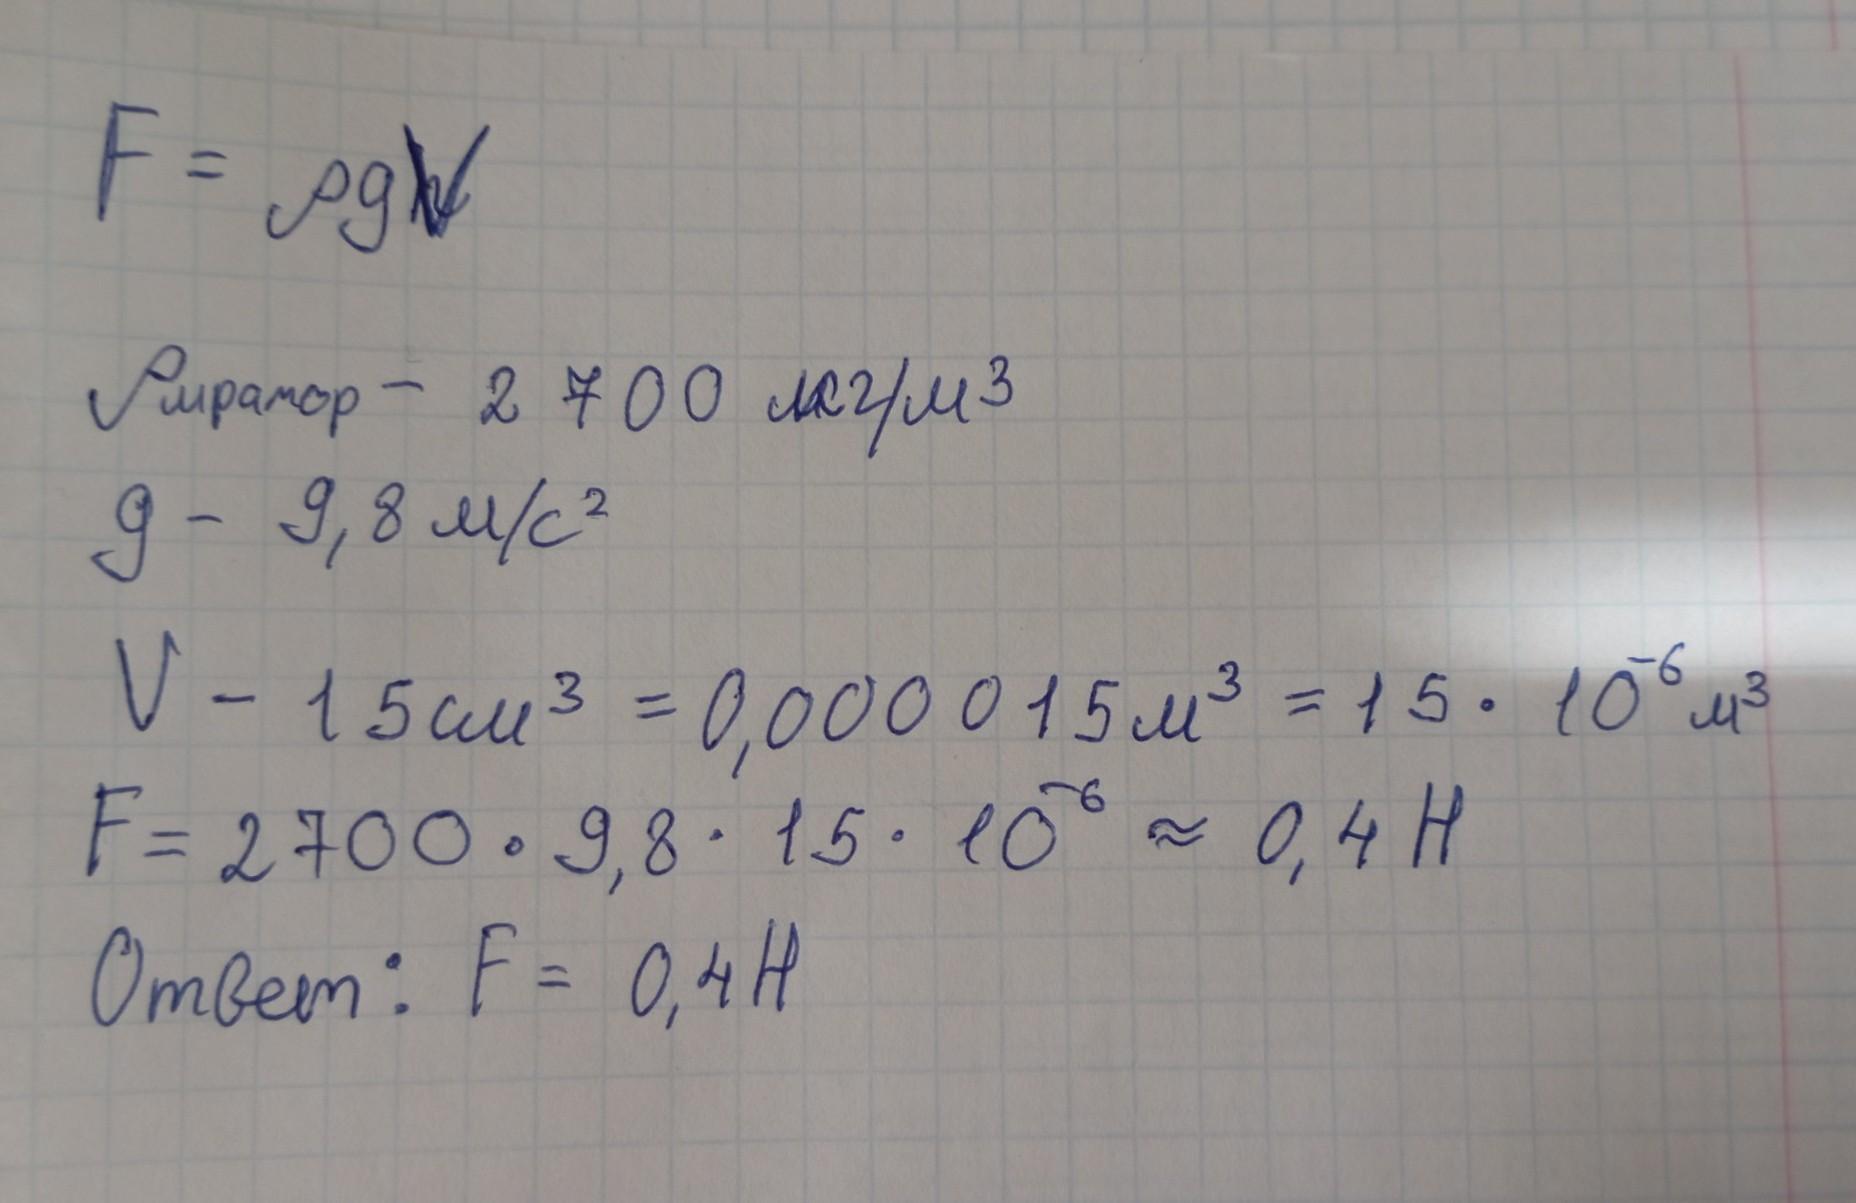 F = ρgV
ρмрамор - 2 700 кг/м³
g - 9,8 м/с²
V - 15 см³ = 0,000 015 м³ = 15 · 10⁻⁶ м³
F = 2700 · 9,8 · 15 · 10⁻⁶ ≈ 0,4 Н
Ответ: F = 0,4 Н